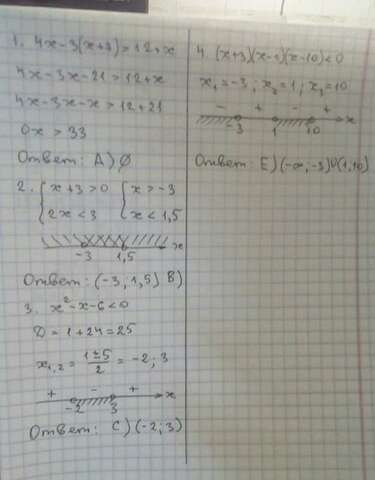 1. 4x-3(x+7)>12+x
4x-3x-21>12+x
4x-3x-x>12+21
0x>33
Ответ: A) ∅
2. { x+3>0 { x>-3
2x<3 x<1,5
-3 1,5 x
Ответ: (-3, 1,5) B)
3. x²-x-6<0
D=1+24=25
x₁,₂ = 1±5/2 = -2; 3
+ - + x
-2 3
Ответ: C) (-2; 3)
4. (x+3)(x-1)(x-10)<0
x₁=-3; x₂=1; x₃=10
- + - +
-3 1 10 x
Ответ: E) (-∞,-3)∪(1,10)